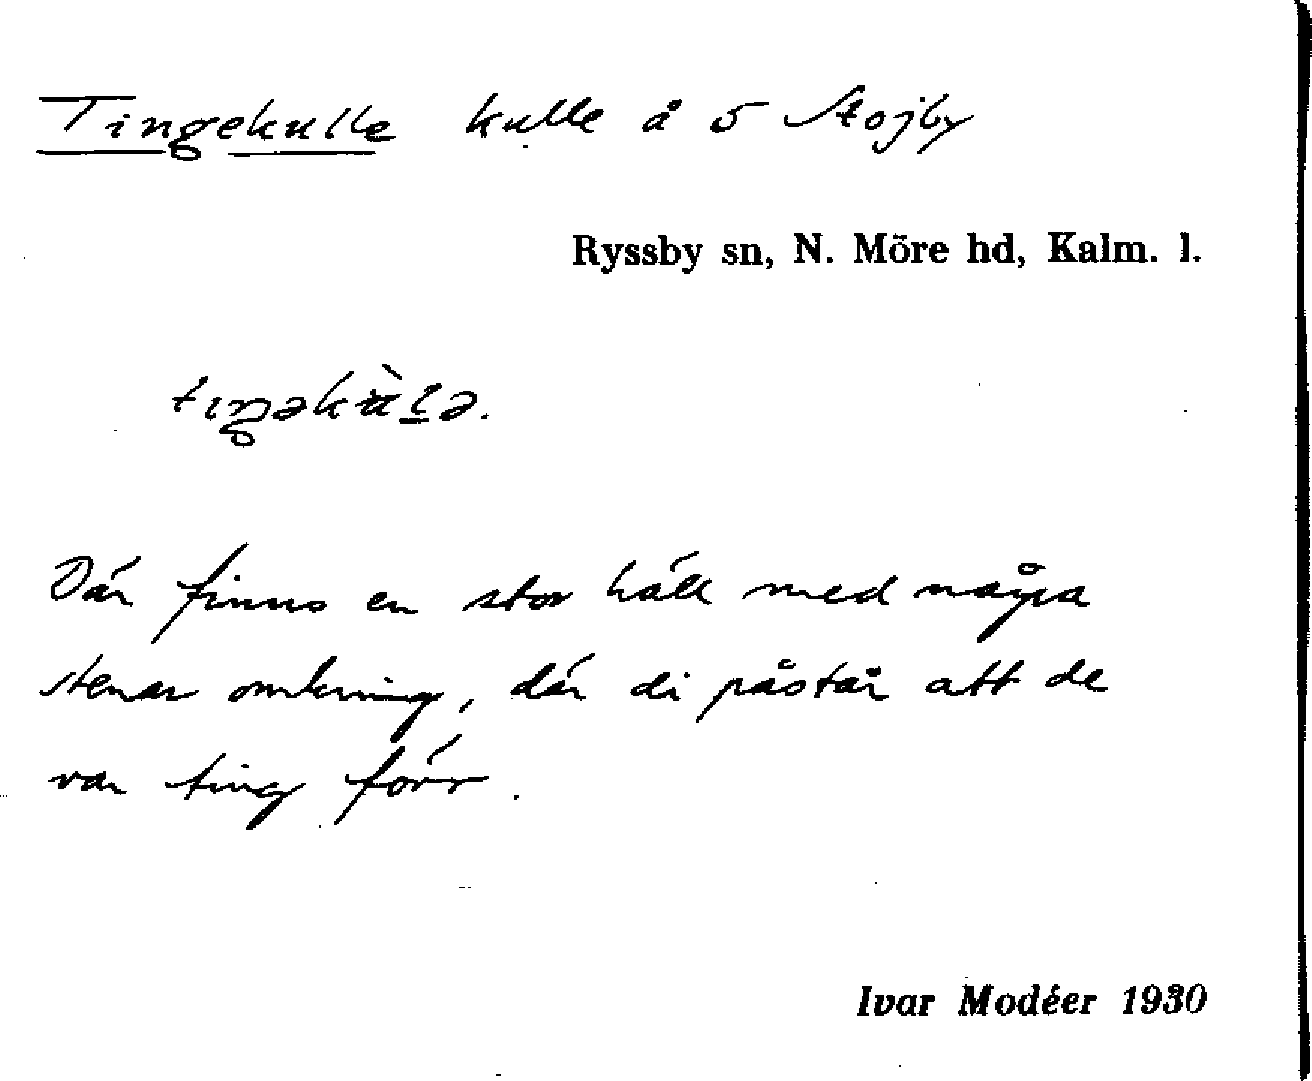 Tingekulle kulle å 5 Stojby
Ryssby sn, N. Möre hd, Kalm. l.
tıŋəkùlə.
Där finns en stor häll med några
stenar omkring, där di påstår att de
var ting förr.
Ivar Modéer 1930